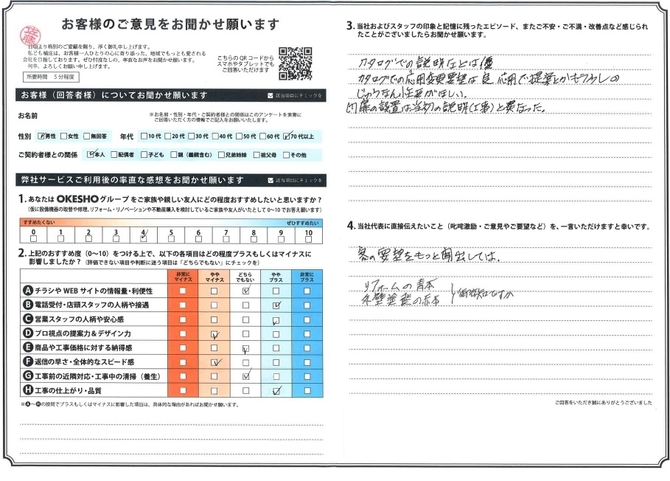 お客様のご意見をお聞かせ願います
日頃より格別のご愛顧を賜り、厚く御礼申し上げます。
所要時間 5分程度
こちらのQRコードから
スマホやタブレットでも
ご回答いただけます
お客様（回答者様）についてお聞かせ願います
該当項目に✓チェックを
お名前
※お名前・性別・年代・ご契約者様との関係はこのアンケートを実際に
ご回答いただく方の情報でご記入をお願いします。
性別 男性 女性 無回答 年代 10代 20代 30代 40代 50代 60代 70代以上
ご契約者様との関係 本人 配偶者 子ども 親（義親含む） 兄弟姉妹 祖父母 その他
弊社サービスご利用後の率直な感想をお聞かせ願います
該当項目に✓チェックを
1. あなたは OKESHOグループ をご家族や親しい友人にどの程度おすすめしたいと思いますか？
（仮に設備機器の取替や修理、リフォーム・リノベーションや不動産購入を検討しているご家族や友人がいたとして 0〜10でお答え願います）
すすめたくない ぜひすすめたい
0 1 2 3 4 5 6 7 8 9 10
2. 上記のおすすめ度（0〜10）をつける上で、以下の各項目はどの程度プラスもしくはマイナスに
影響しましたか？（評価できない項目や判断に迷う項目は「どちらでもない」にチェックを）
非常に
マイナス
やや
マイナス
どちら
でもない
やや
プラス
非常に
プラス
A チラシやWEBサイトの情報量・利便性
B 電話受付・店頭スタッフの人柄や接遇
C 営業スタッフの人柄や安心感
D プロ視点の提案力＆デザイン力
E 商品や工事価格に対する納得感
F 返信の早さ・全体的なスピード感
G 工事前の近隣対応・工事中の清掃（養生）
H 工事の仕上がり・品質
※A〜Hの設問でプラスもしくはマイナスに影響した項目は、具体的な理由があればお聞かせ願います。
3. 当社およびスタッフの印象と記憶に残ったエピソード、またご不安・ご不満・改善点など感じられ
たことがございましたらお聞かせ願います。
カタログでの説明などは優
カタログでの応用変更要望は
じゅうなん性がほしい。
の設置は当初の説明と異なった。
4. 当社代表に直接伝えたいこと（叱咤激励・ご意見やご要望など）を、一言いただけますと幸いです。
客の要望をもっと
リフォームの
ご回答をいただき誠にありがとうございました